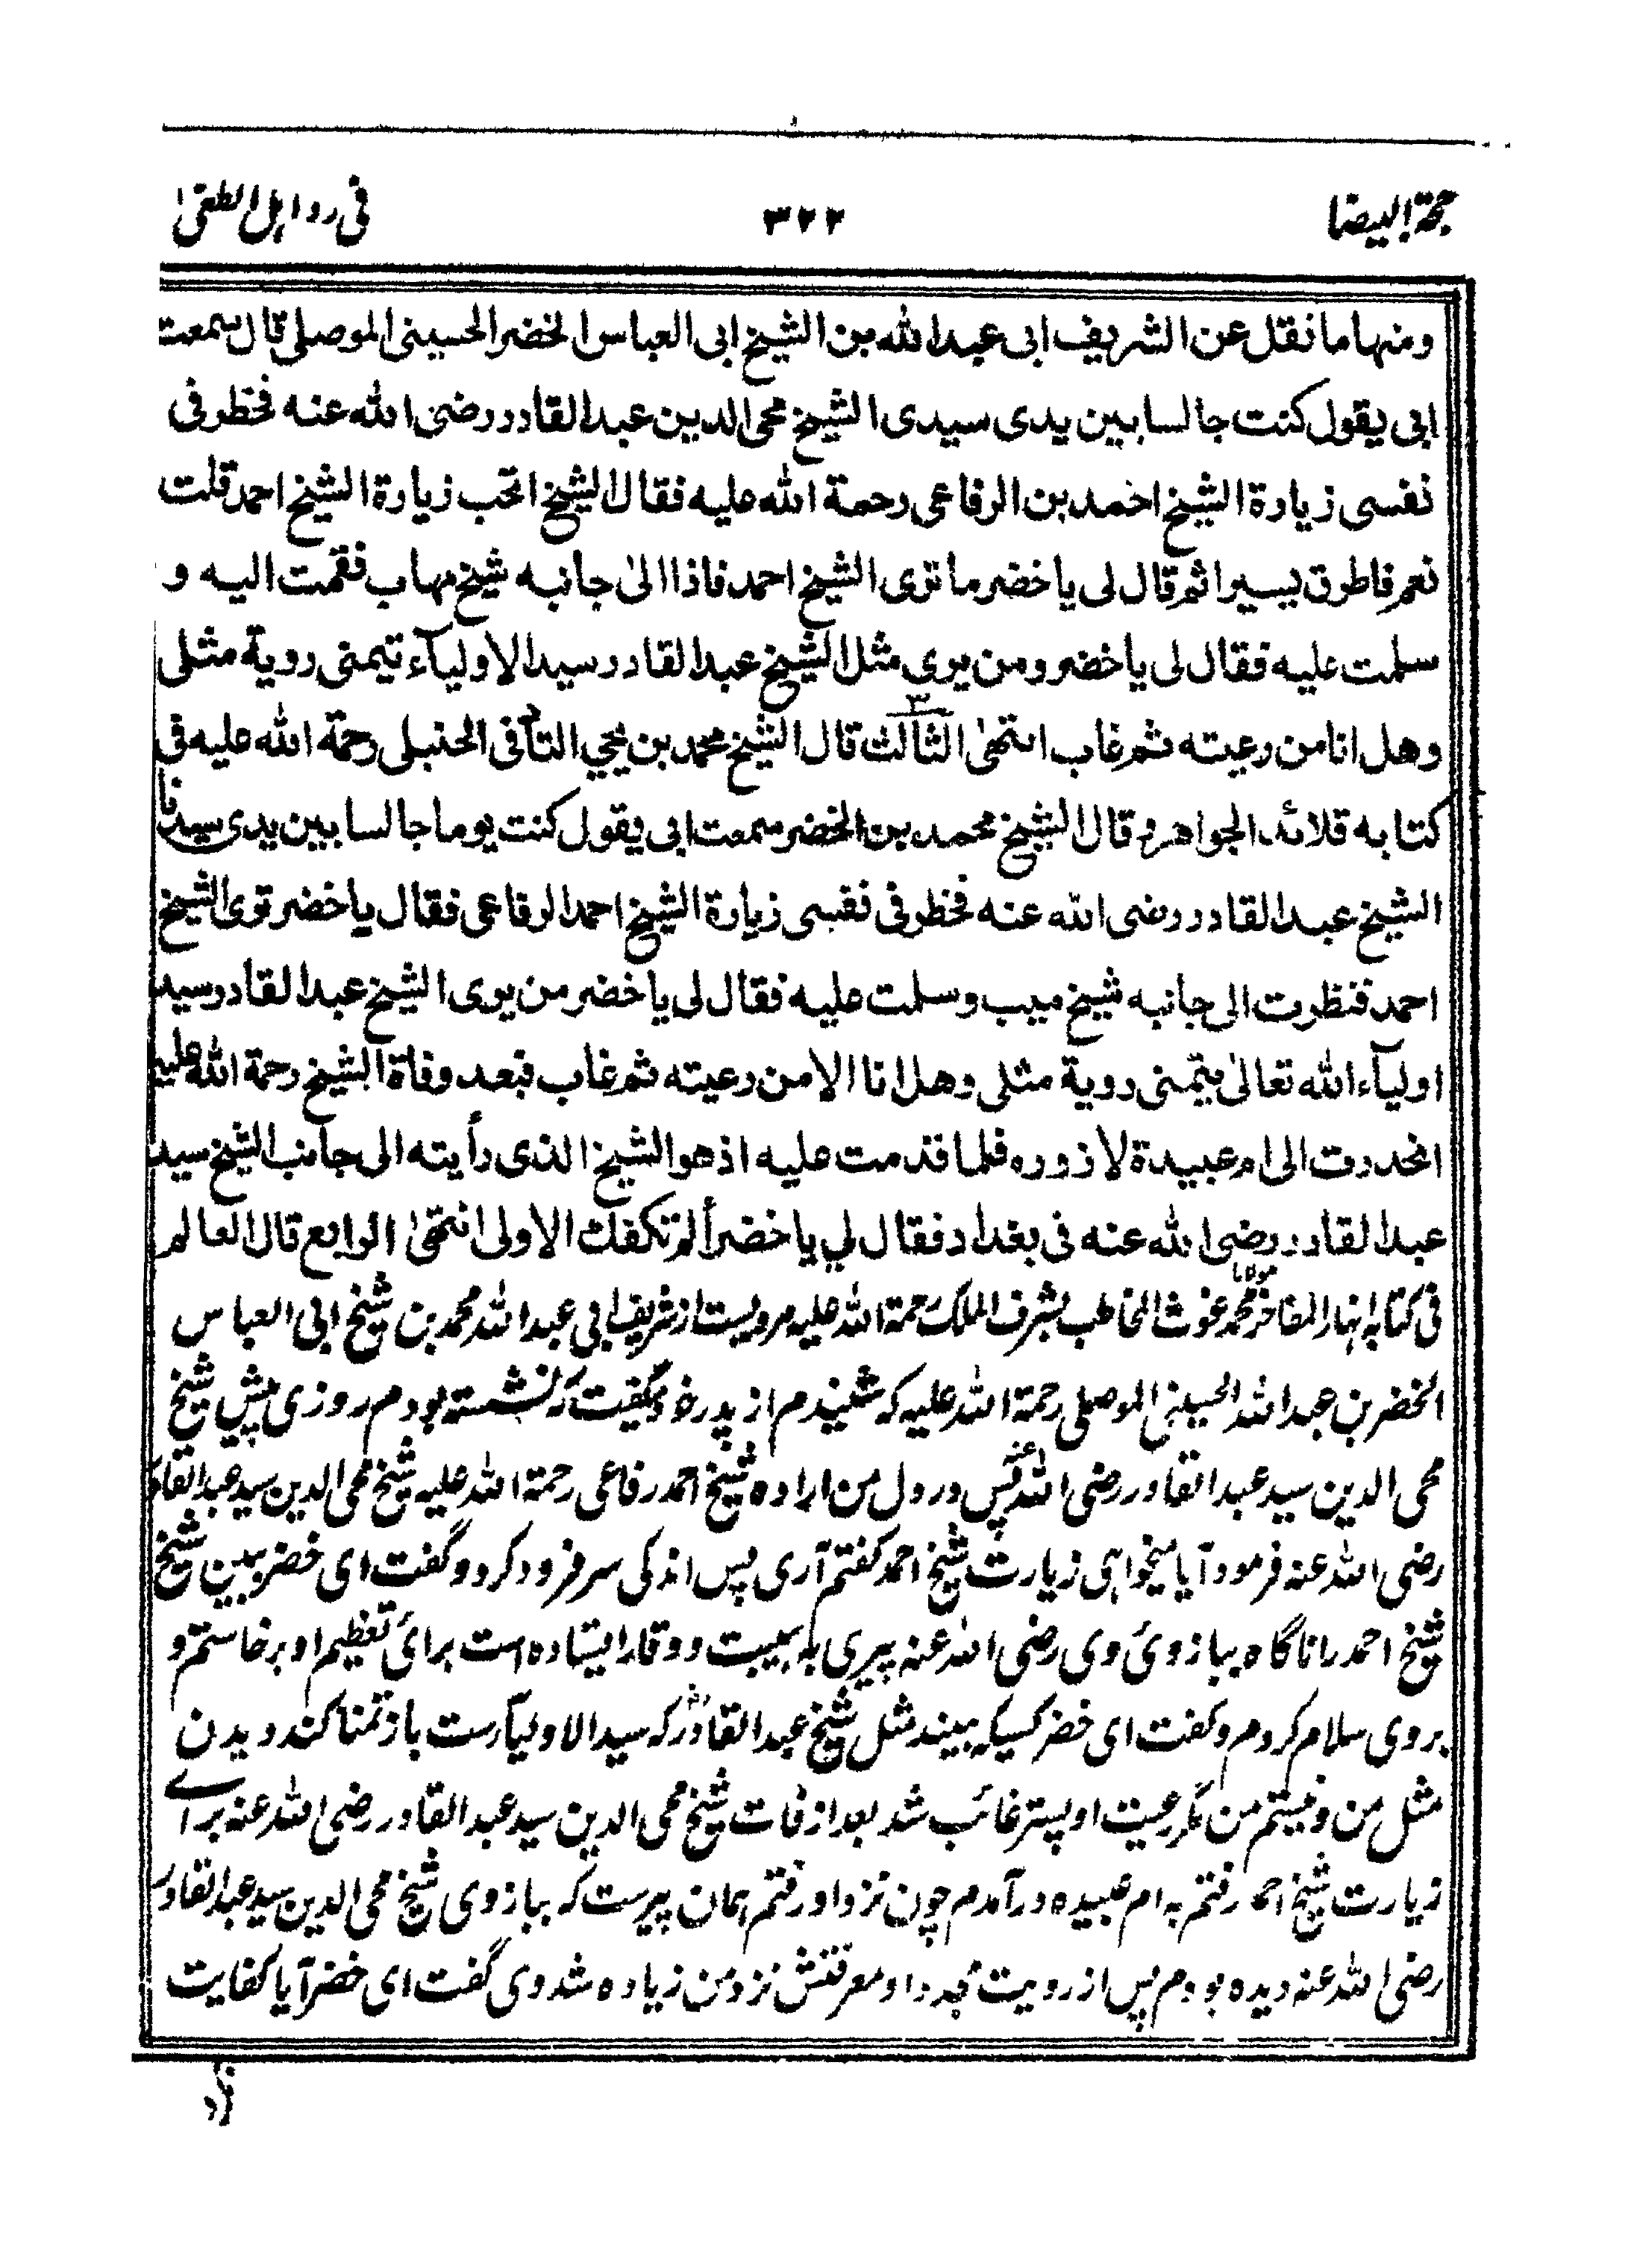 حجة البيضا ٣٢٢ فی رد اہل الطغیٰ
ومنہا ما نقل عن الشریف ابی عبد اللہ بن الشیخ ابی العباس الخضر الحسینی الموصلی قال سمعت
ابی یقول کنت جالسا بین یدی سیدی الشیخ محی الدین عبد القادر رضی اللہ عنہ فخطر فی
نفسی زیارة الشیخ احمد بن الرفاعی رحمة اللہ علیہ فقال الشیخ اتحب زیارة الشیخ احمد قلت
نعم فاطرق یسیرا ثم قال لی یا خضر ما تری الشیخ احمد فاذا الیٰ جانبہ شیخ مہاب فقمت الیہ و
سلمت علیہ فقال لی یا خضر ومن یری مثل الشیخ عبد القادر سید الاولیآء تیمنی رویة مثلی
وھل انا من رعیتہ ثم غاب انتھیٰ الثالث ٣ قال الشیخ محمد بن یحیی التآفی الحنبلی رحمة اللہ علیہ فی
کتابہ قلائد الجواھر و قال الشیخ محمد بن الخضر سمعت ابی یقول کنت یوما جالسا بین یدی سیدنا
الشیخ عبد القادر رضی اللہ عنہ فخطر فی نفسی زیارة الشیخ احمد الرفاعی فقال یا خضر تری الشیخ
احمد فنظرت الی جانبہ شیخ میب وسلمت علیہ فقال لی یا خضر من یری الشیخ عبد القادر سید
اولیآء اللہ تعالیٰ یتمنی رویة مثلی وھل انا الا من رعیتہ ثم غاب فبعد وفاة الشیخ رحمة اللہ علیہ
انحدرت الی ام عبیدة لازورہ فلما قدمت علیہ اذ ھو الشیخ الذی رأیتہ الی جانب الشیخ سید
عبد القادر رضی اللہ عنہ فی بغداد فقال لی یا خضر ألم تکفك الاولی انتھیٰ الرابع قال العالم
فی کتابہ انہار المفاخر مولانا محمد غوث المخاطب بشرف الملک رحمة اللہ علیہ مرویست از شریف ابی عبد اللہ محمد بن شیخ ابی العباس
الخضر بن عبد اللہ الحسینی الموصلی رحمة اللہ علیہ کہ شنیدم از پدر خود گفت کہ نشستہ بودم روزی پیش شیخ
محی الدین سید عبد القادر رضی اللہ عنہ پس در دل من ارادہ شیخ احمد رفاعی رحمة اللہ علیہ شیخ محی الدین سید عبد القادر
رضی اللہ عنہ فرمود آیا میخواہی زیارت شیخ احمد گفتم آری پس اندکی سر فرود کرد و گفت ای خضر ببین شیخ
شیخ احمد را ناگاہ ببازوئ وی رضی اللہ عنہ پیری بہ ہیبت و وقار ایستادہ است برائ تعظیم او برخاستم و
بروی سلام کردم و گفت ای خضر کسیکہ بیند مثل شیخ عبد القادر کہ سید الاولیآرست باز تمنا کند دیدن
مثل من و نیستم من مگر رعیت او پستر غائب شد بعد از وفات شیخ محی الدین سید عبد القادر رضی اللہ عنہ برائے
زیارت شیخ احمد رفتم بہ ام عبیدہ در آمدم چون نزد او رفتم ہمان پیرست کہ ببازوی شیخ محی الدین سید عبد القادر
رضی اللہ عنہ دیدہ بودم پس از رویت مجدد او معرفتش نزد من زیادہ شد وی گفت ای خضر آیا کفایت